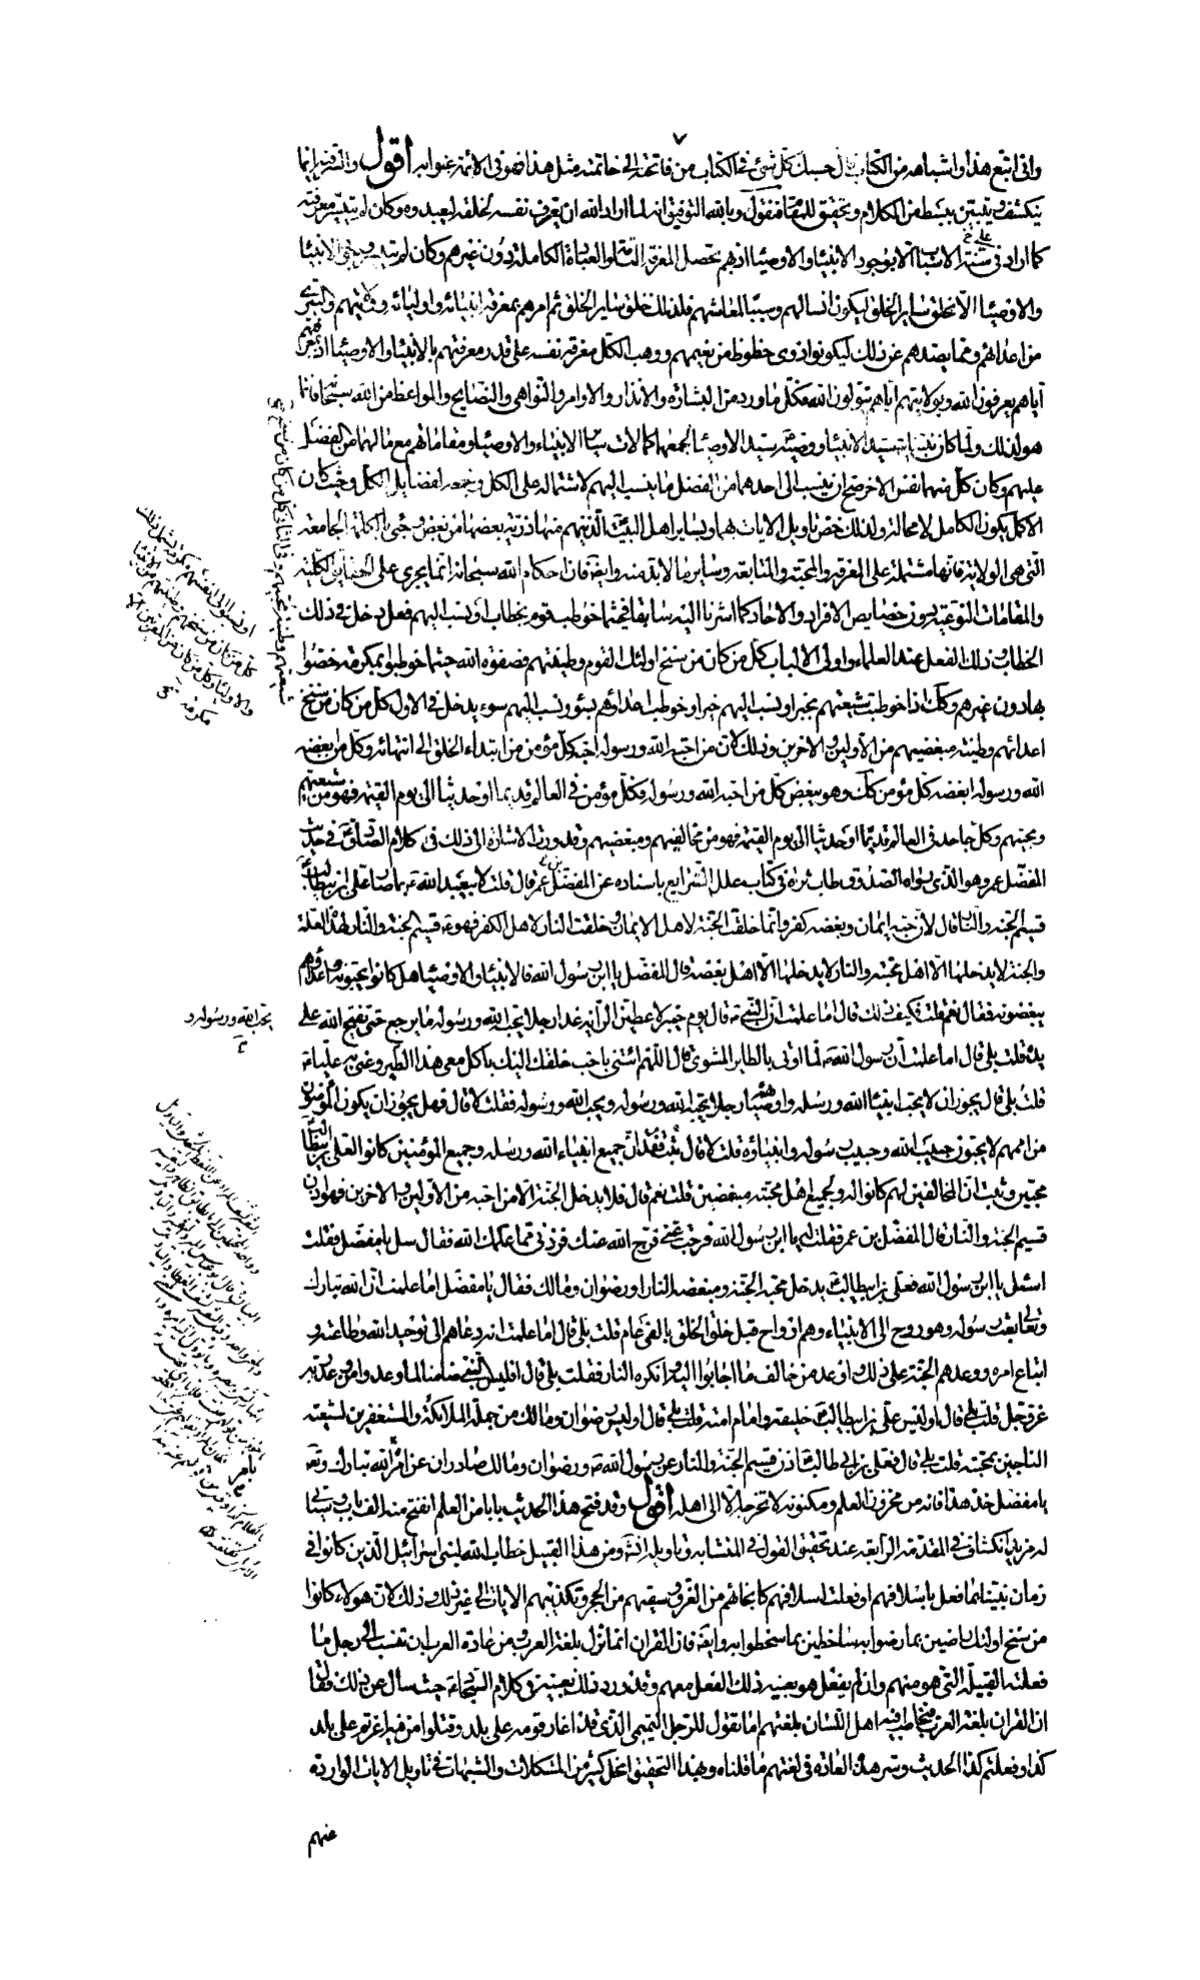 ٧
واذا تتبع هذا واشباهه من الكتاب قال حسبك كل شئ فى الكتاب من فاتحته الى خاتمته مثل هذا فهو فى الائمة عنوا به اقول والسر فيه انما
ينكشف ويتبين ببسط من الكلام وتحقيق للمقام فنقول وبالله التوفيق انه لما اراد الله ان يعرف نفسه لخلقه ليعبدوه وكان لم يتيسر معرفته
كما اراد على سنة الاسباب الا بوجود الانبياء والاوصياء اذ بهم تحصل المعرفة التامة والعبادة الكاملة دون غيرهم وكان لم يتيسر وجود الانبياء
والاوصياء الا بخلق ساير الخلق ليكون انسا لهم وسببا لمعاشهم فلذلك خلق ساير الخلق ثم امرهم بمعرفة انبيائه واوليائه وولايتهم والتبرى
من اعدائهم ومما يصدهم عن ذلك ليكونوا ذوى حظوظ من نعيمهم ووهب الكل معرفة نفسه على قدر معرفتهم بالانبياء والاوصياء اذ بمعرفتهم
اياهم يعرفون الله وبولايتهم اياهم يتولون الله فكل ما ورد من البشارة والانذار والاوامر والنواهى والنصايح والمواعظ من الله سبحانه فانما
هو لذلك ولما كان نبينا سيد الانبياء ووصيه سيد الاوصياء لجمعهما كمالات ساير الانبياء والاوصياء ومقاماتهم مع ما لهما من الفضل
عليهم وكان كل منهما نفس الاخر صح ان ينسب الى احدهما من الفضل ما ينسب اليهم لاشتماله على الكل وجمعه لفضايل الكل وحيث كان
الاكمل يكون الكامل لا محالة ولذلك خص تاويل الايات بهما وبساير اهل البيت الذين هم منهما ذرية بعضها من بعض وجئ بالكلمة الجامعة
التى هى الولاية فانها مشتملة على المعرفة والمحبة والمتابعة وساير ما لا بد منه وايضا فان احكام الله سبحانه انما يجرى على الحقايق الكلية
والمقامات النوعية دون خصايص الافراد والاحاد كما اشرنا اليه سابقا فحيثما خوطب قوم بخطاب او نسب اليهم فعل دخل فى ذلك
الخطاب وذلك الفعل عند العلماء واولى الالباب كل من كان من سنخ اولئك القوم وطينتهم فصفوة الله حيثما خوطبوا بمكرمة خصوا
بها دون غيرهم وكذلك اذا خوطبت شيعتهم بخير او نسب اليهم خير او خوطب اعداؤهم بسوء ونسب اليهم سوء يدخل فى الاول كل من كان من سنخ
اعدائهم وطينة مبغضيهم من الاولين والاخرين وذلك لان من احبه الله ورسوله احبه كل مؤمن من ابتداء الخلق الى انتهائه وكل من ابغضه
الله ورسوله ابغضه كل مؤمن كذلك وهو يبغض كل من احبه الله ورسوله فكل مؤمن فى العالم قديما او حديثا الى يوم القيمة فهو من شيعتهم
ومحبيهم وكل جاحد فى العالم قديما او حديثا الى يوم القيمة فهو من مخالفيهم ومبغضيهم وقد وردت الاشارة الى ذلك فى كلام الصادق فى حديث
المفضل بن عمر وهو الذى رواه الصدوق طاب ثراه فى كتاب علل الشرايع باسناده عن المفضل بن عمر قال قلت لابيعبد الله بما صار على بن ابيطالب
قسيم الجنة والنار قال لان حبه ايمان وبغضه كفر وانما خلقت الجنة لاهل الايمان وخلقت النار لاهل الكفر فهو قسيم الجنة والنار لهذه العلة
والجنة لا يدخلها الا اهل محبته والنار لا يدخلها الا اهل بغضه قال المفضل يا ابن رسول الله فالانبياء والاوصياء هل كانوا يحبونه واعداؤهم
يبغضونه فقال نعم قلت فكيف ذلك قال اما علمت ان النبى قال يوم خيبر لاعطين الراية غدا رجلا يحب الله ورسوله ما يرجع حتى يفتح الله على
يده قلت بلى قال اما علمت ان رسول الله لما اوتى بالطاير المشوى قال اللهم ائتنى باحب خلقك اليك ياكل معى هذا الطير وعنى به عليا
قلت بلى قال يجوز ان لا يحب انبياء الله ورسله واوصياؤهم رجلا يحبه الله ورسوله ويحب الله ورسوله فقلت لا قال فهل يجوز ان يكون المؤمنون
من اممهم لا يحبون حبيب الله وحبيب رسوله وانبيائه قلت لا قال فقد ثبت ان جميع انبياء الله ورسله وجميع المؤمنين كانوا لعلى بن ابيطالب
محبين وثبت ان المخالفين لهم كانوا له ولجميع اهل محبته مبغضين قلت نعم قال فلا يدخل الجنة الا من احبه من الاولين والاخرين فهو اذن
قسيم الجنة والنار قال المفضل بن عمر فقلت له يا ابن رسول الله فرجت عنى فرج الله عنك فزدنى مما علمك الله فقال سل يا مفضل فقلت
اسئل يا ابن رسول الله فعلى بن ابيطالب يدخل محبه الجنة ومبغضه النار او رضوان ومالك فقال يا مفضل اما علمت ان الله تبارك
وتعالى بعث رسوله وهو روح الى الانبياء وهم ارواح قبل خلق الخلق بالفى عام قلت بلى قال اما علمت انه دعاهم الى توحيد الله وطاعته و
اتباع امره ووعدهم الجنة على ذلك واوعد من خالف ما اجابوا اليه وانكره النار فقلت بلى قال افليس النبى ضامنا لما وعد واوعد عن ربه
عز وجل قلت بلى قال اوليس على بن ابيطالب خليفته وامام امته قلت بلى قال اوليس رضوان ومالك من جملة الملائكة والمستغفرين لشيعته
الناجين بمحبته قلت بلى قال فعلى بن ابى طالب اذن قسيم الجنة والنار عن رسول الله ورضوان ومالك صادران عن امره بامر الله تبارك وتعالى
يا مفضل خذ هذا فانه من مخزون العلم ومكنونه لا تخرجه الا الى اهله اقول وقد فتح هذا الحديث بابا من العلم انفتح منه الف باب وسياتى
له مزيد انكشاف فى المقدمة الرابعة عند تحقيق القول فى المتشابه وتاويله انشاء ومن هذا القبيل خطاب الله لبنى اسرائيل الذين كانوا فى
زمان نبينا بما فعل باسلافهم او فعلت اسلافهم كانجائهم من الغرق وسقيهم من الحجر وتكذيبهم الايات الى غير ذلك وذلك لان هؤلاء كانوا
من سنخ اولئك راضين بما رضوا به ساخطين بما سخطوا به وايضا فان القران انما نزل بلغة العرب ومن عادة العرب ان تنسب الى رجل ما
فعلته القبيلة التى هو منهم وان لم يفعل هو بعينه ذلك الفعل معهم وقد ورد ذلك بعينه فى كلام السجاد حيث سال عن ذلك فقال
ان القران بلغة العرب فيخاطب فيه اهل اللسان بلغتهم اما تقول للرجل التميمى الذى قد اغار قومه على بلد وقتلوا من فيه اغرتم على بلد
كذا وفعلتم كذا الحديث وسر هذه العادة فى لغتهم ما قلناه وبهذا التحقيق انحل كثير من المشكلات والشبهات فى تاويل الايات الواردة
عنهم
شيعتهم وطينة محبيهم وفى الثانى كل من كان من سنخ
او نسبوا الى انفسهم مكرمة يشمل ذلك
كل من كان من سنخهم وطينتهم من الانبياء
والاولياء وكل من كان من المقربين الا
مكرمة
يحبه الله ورسوله